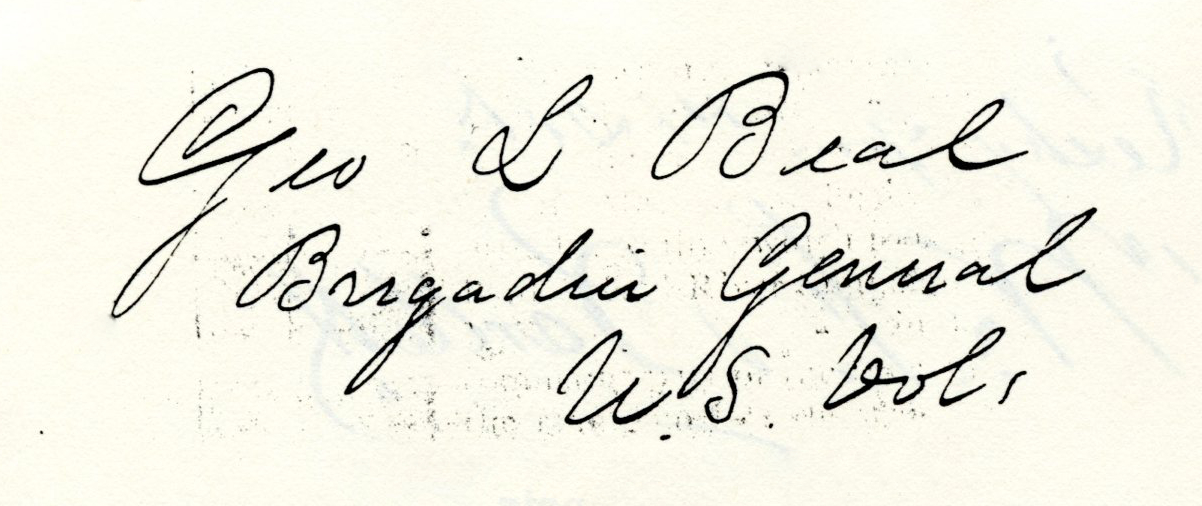 Geo L Beal
Brigadier General
U.S. Vols